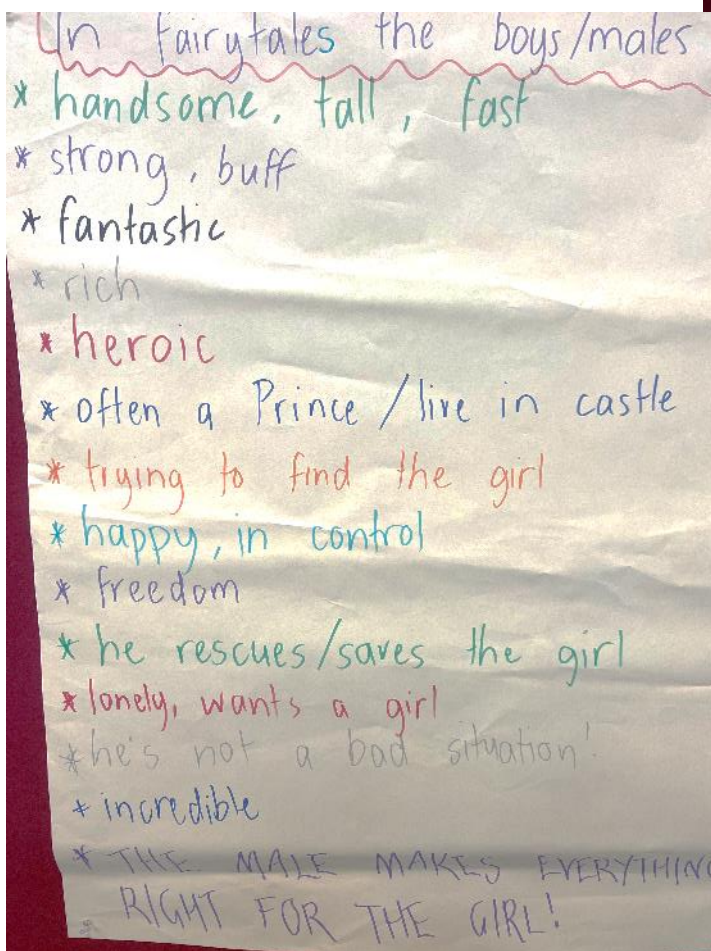 In fairytales the boys/males
* handsome, tall, fast
* strong, buff
* fantastic
* rich
* heroic
* often a Prince/live in castle
* trying to find the girl
* happy, in control
* freedom
* he rescues/saves the girl
* lonely, wants a girl
* he's not a bad situation!
* incredible
* THE MALE MAKES EVERYTHING
RIGHT FOR THE GIRL!